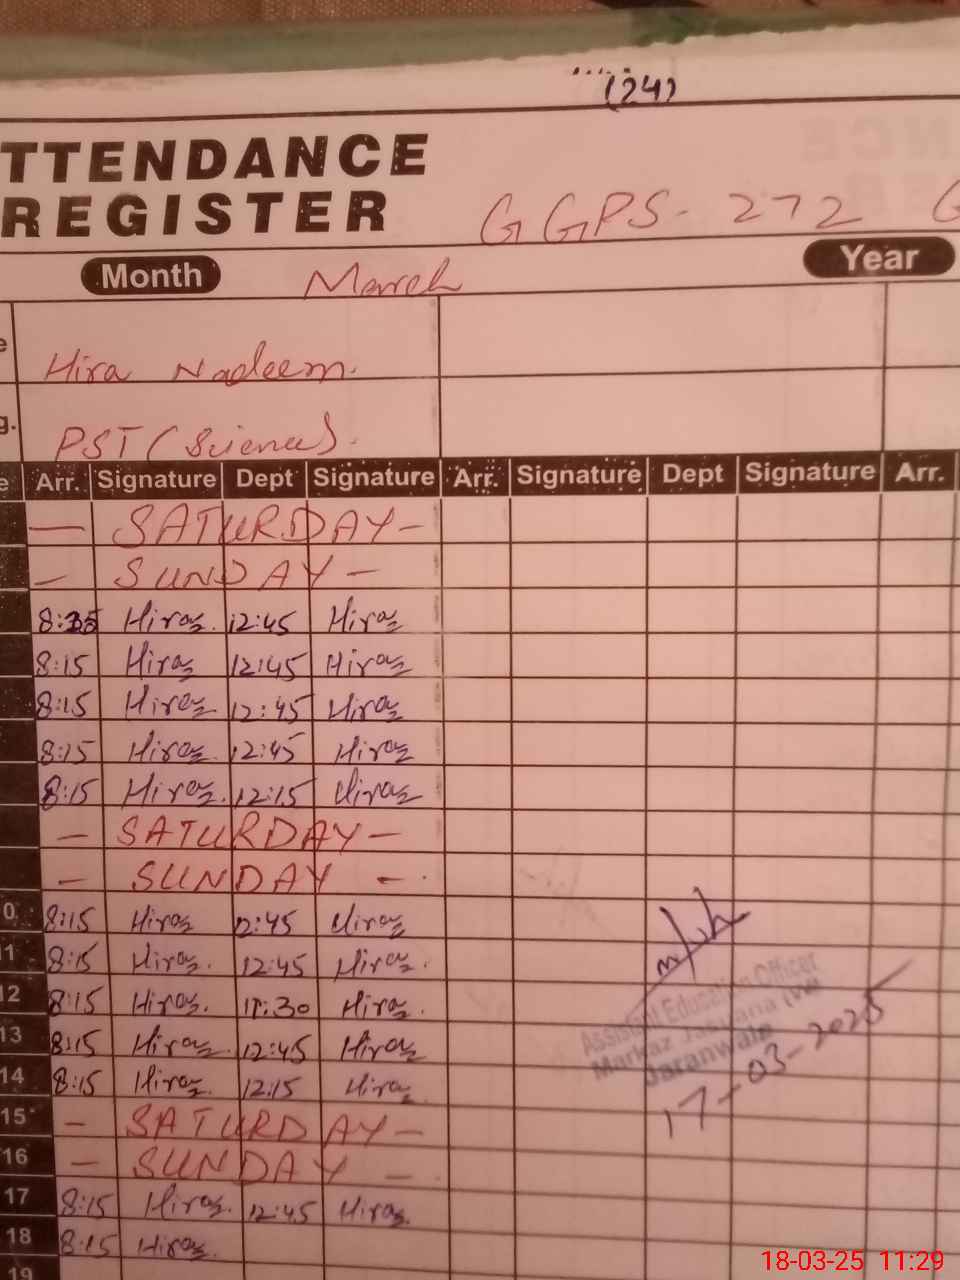 (24)
TTENDANCE
REGISTER
GGPS- 272 G
Month March Year
Hira Nadeem.
g. PST (Science).
e Arr. Signature Dept Signature Arr. Signature Dept Signature Arr.
— SATURDAY —
— SUNDAY —
Hira 12:45 Hira
8:15 Hira 12:45 Hira
8:15 Hira 12:45 Hira
8:15 Hira 12:45 Hira
8:15 Hira 12:15 Hira
— SATURDAY —
— SUNDAY —
0 8:15 Hira 12:45 Hira
1 8:15 Hira 12:45 Hira
12 8:15 Hira 11:30 Hira
13 8:15 Hira 12:45 Hira
14 8:15 Hira 12:15 Hira
15 — SATURDAY —
16 — SUNDAY —
17 8:15 Hira 12:45 Hira
18 8:15 Hira
19
Assistant Education Officer
Markaz
Jaranwala
17-03-2025
18-03-25 11:29